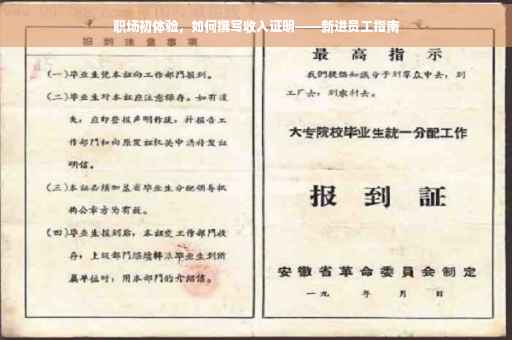 职场初体验，如何撰写收入证明——新进员工指南
报到注意事项
(一)毕业生凭本证向工作部门报到。
(二)毕业生对本证应注意保存。如有遗
失，应即登报声明作废，并报告工
作部门和向原发证机关申请补发证
明信。
(三)本证必须加盖省毕业生分配领导机
构公章方为有效。
(四)毕业生报到后，本证交工作部门收
存；上级部门
毕业生到所
属单位时，用本部门的介绍信。
最高指示
我们提倡知识分子到群众中去，到
工厂去，到农村去。
大专院校毕业生統一分配工作
报到証
安徽省革命委員会制定
一九 年 月 日